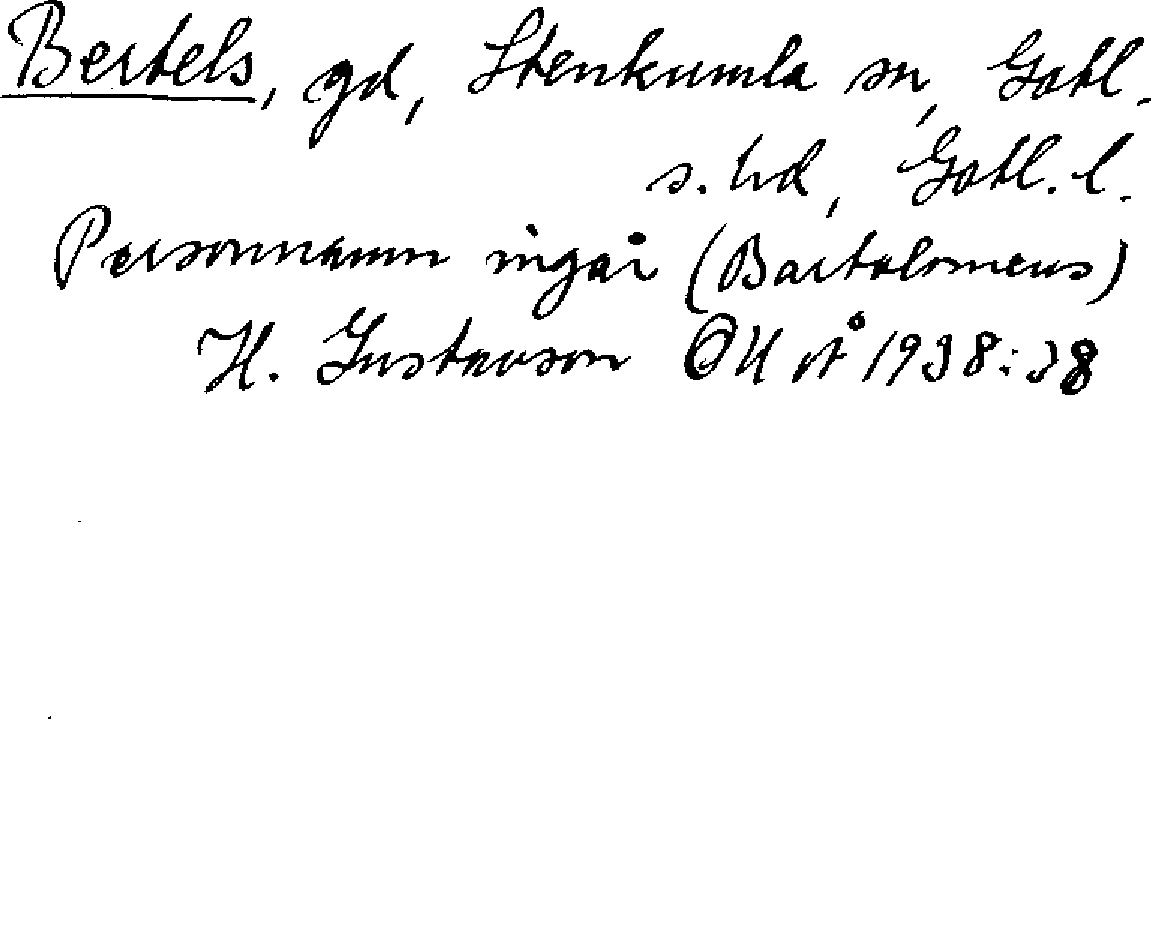 Bertels, gd, Stenkumla sn, Gotl.
s. hd, Gotl. l.
Personnamn ingår (Bartolomeus)
H. Gustavson 1938:38